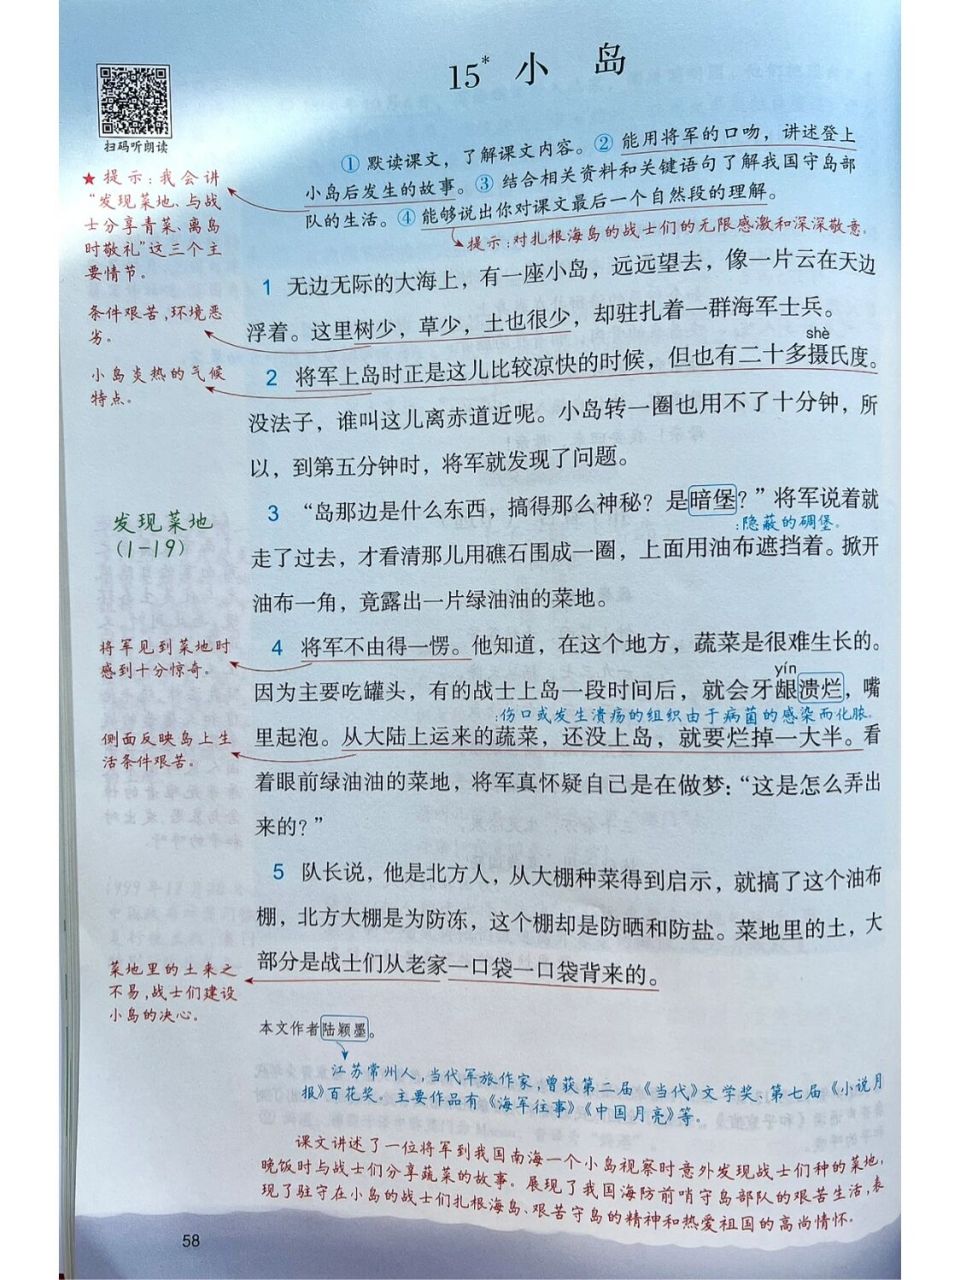 15* 小 岛
扫码听朗读
①默读课文，了解课文内容。②能用将军的口吻，讲述登上
小岛后发生的故事。③结合相关资料和关键语句了解我国守岛部
队的生活。④能够说出你对课文最后一个自然段的理解。
提示:对扎根海岛的战士们的无限感激和深深敬意。
★提示:我会讲
“发现菜地、与战
士分享青菜、离岛
时敬礼”这三个主
要情节。
1 无边无际的大海上，有一座小岛，远远望去，像一片云在天边
浮着。这里树少，草少，土也很少，却驻扎着一群海军士兵。
条件艰苦,环境恶
劣。
shè
2 将军上岛时正是这儿比较凉快的时候，但也有二十多摄氏度。
没法子，谁叫这儿离赤道近呢。小岛转一圈也用不了十分钟，所
以，到第五分钟时，将军就发现了问题。
小岛炎热的气候
特点。
3 “岛那边是什么东西，搞得那么神秘？是暗堡？”将军说着就
:隐蔽的碉堡。
走了过去，才看清那儿用礁石围成一圈，上面用油布遮挡着。掀开
油布一角，竟露出一片绿油油的菜地。
发现菜地
(1-19)
4 将军不由得一愣。他知道，在这个地方，蔬菜是很难生长的。
yín
因为主要吃罐头，有的战士上岛一段时间后，就会牙龈溃烂，嘴
:伤口或发生溃疡的组织由于病菌的感染而化脓。
里起泡。从大陆上运来的蔬菜，还没上岛，就要烂掉一大半。看
着眼前绿油油的菜地，将军真怀疑自己是在做梦：“这是怎么弄出
来的？”
将军见到菜地时
感到十分惊奇。
侧面反映岛上生
活条件艰苦。
5 队长说，他是北方人，从大棚种菜得到启示，就搞了这个油布
棚，北方大棚是为防冻，这个棚却是为防晒和防盐。菜地里的土，大
部分是战士们从老家一口袋一口袋背来的。
菜地里的土来之
不易,战士们建设
小岛的决心。
本文作者陆颖墨。
江苏常州人,当代军旅作家,曾获第二届《当代》文学奖、第七届《小说月
报》百花奖。主要作品有《海军往事》《中国月亮》等.
课文讲述了一位将军到我国南海一个小岛视察时意外发现战士们种的菜地,
晚饭时与战士们分享蔬菜的故事。展现了我国海防前哨守岛部队的艰苦生活,表
现了驻守在小岛的战士们扎根海岛、艰苦守岛的精神和热爱祖国的高尚情怀.
58